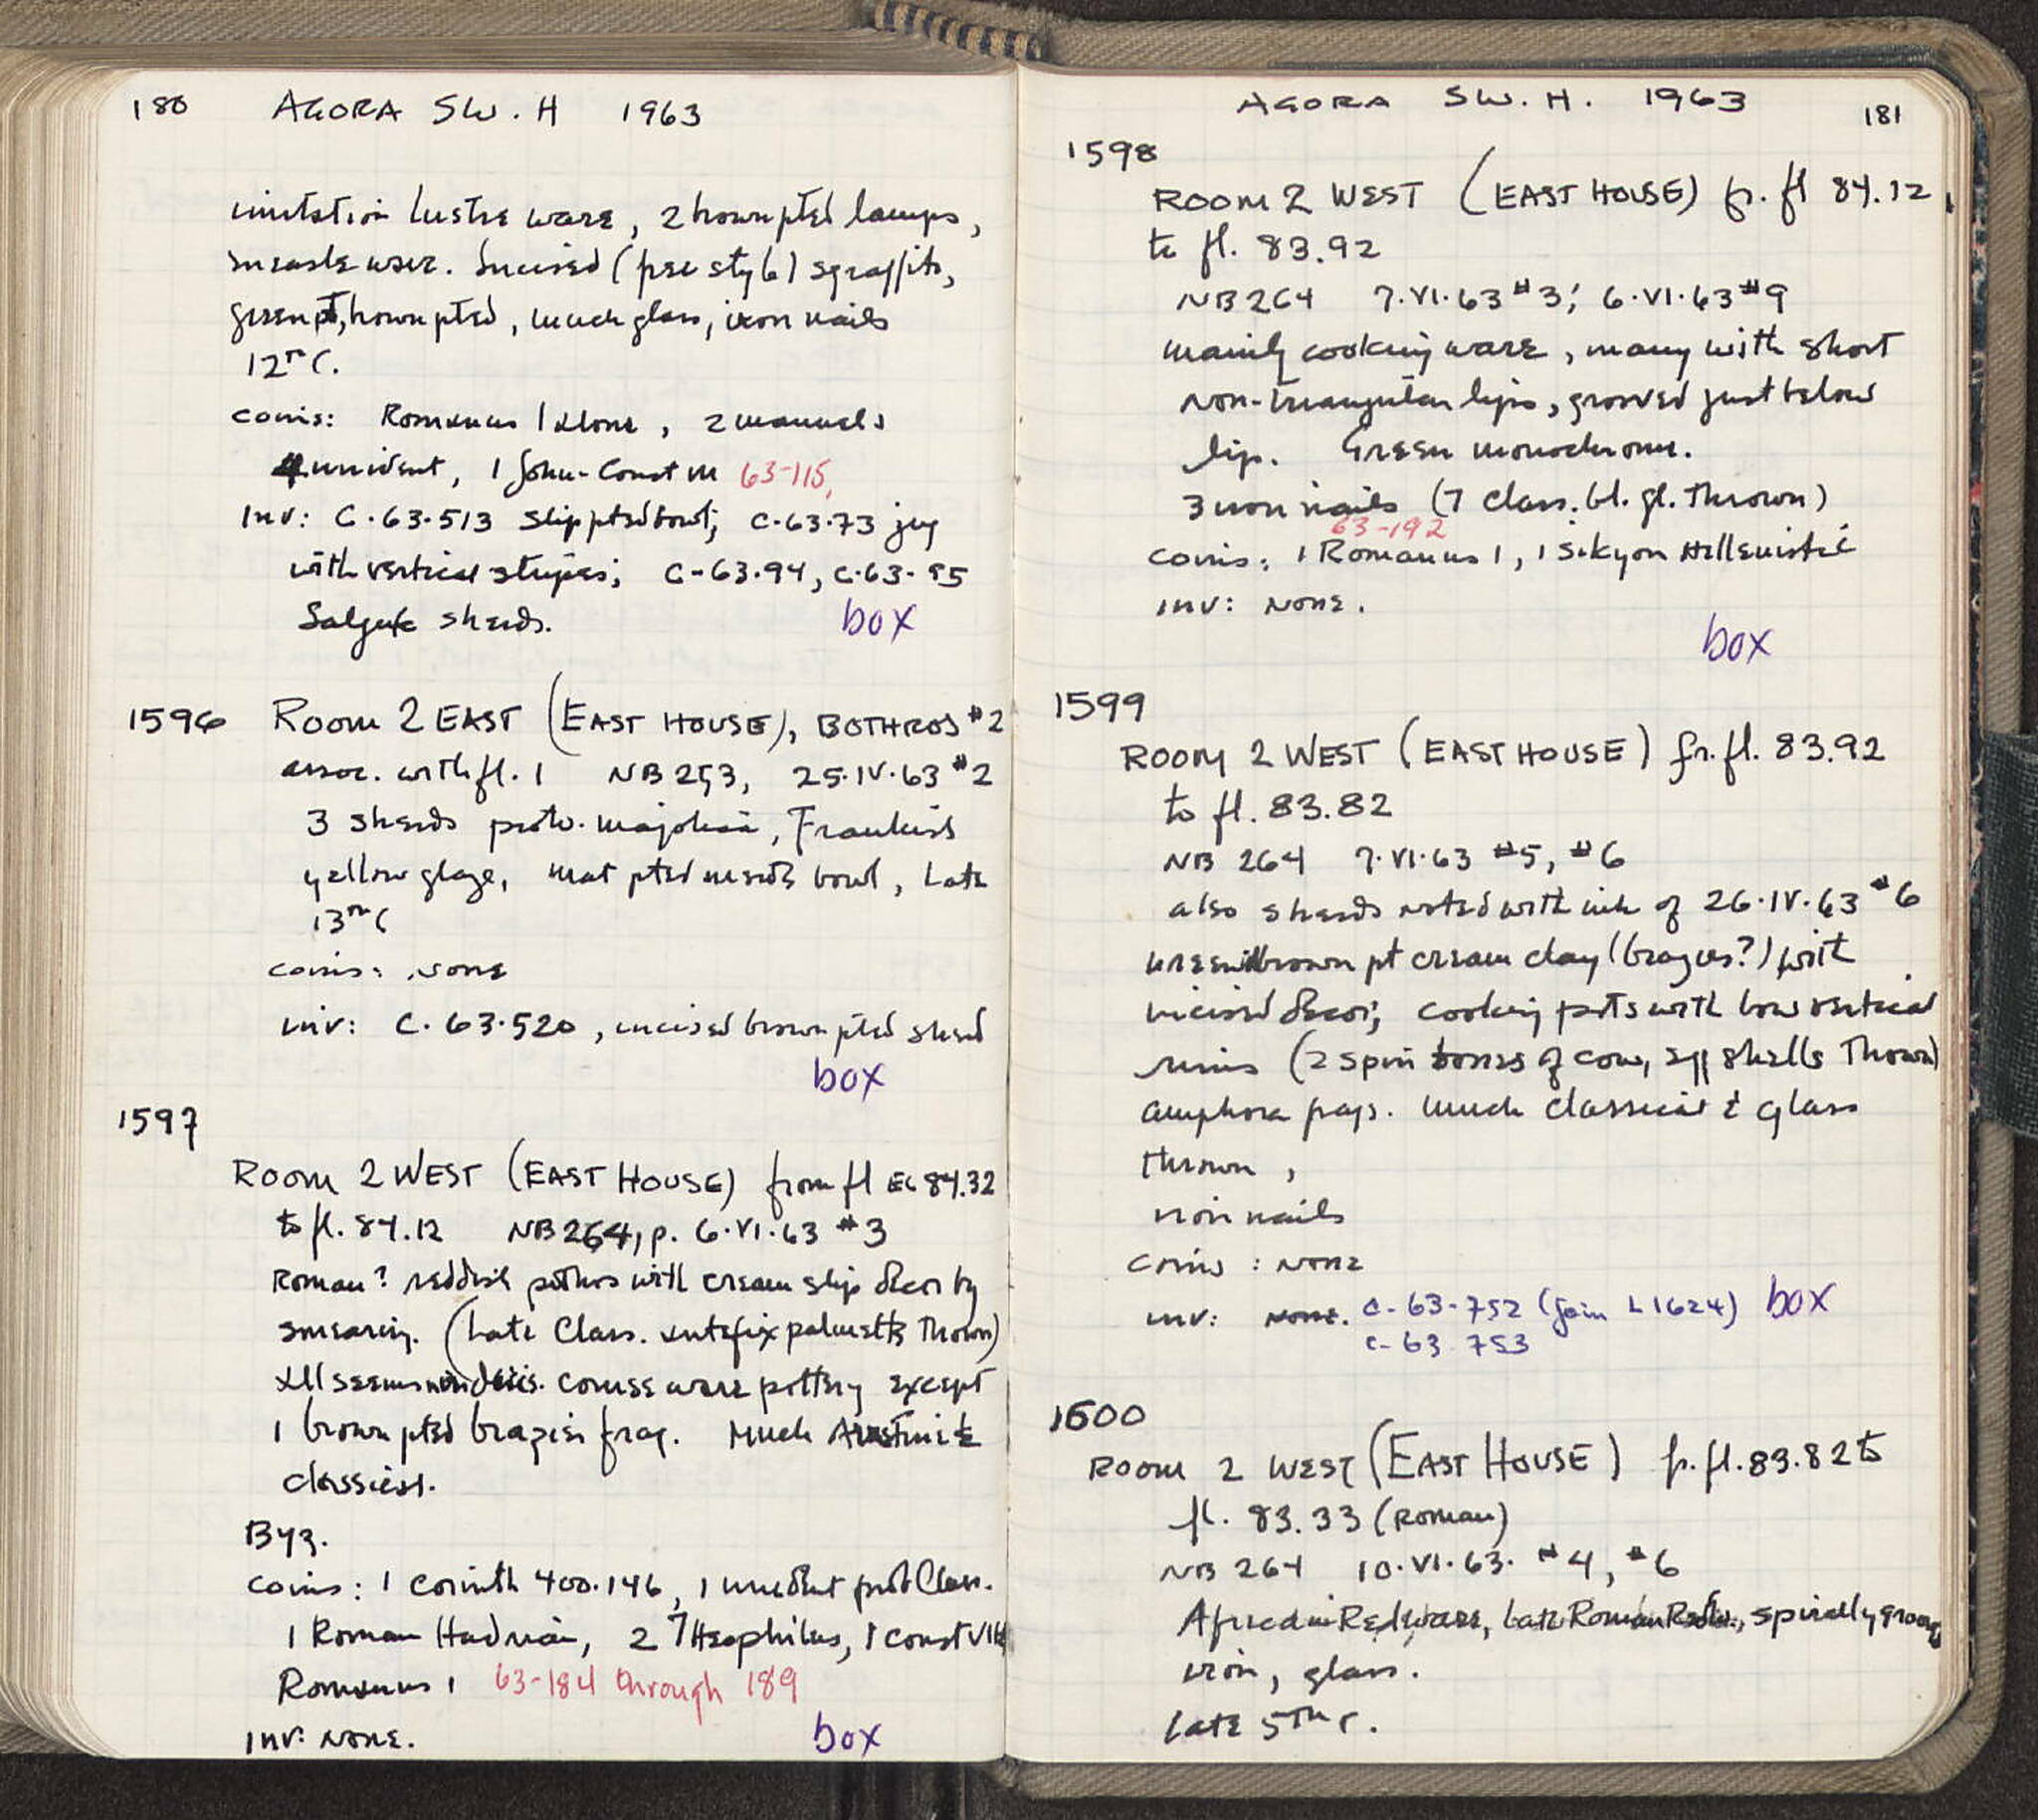 180 AGORA SW. H 1963
imitation lustre ware, 2 brown pted lamps,
measle ware. Incised (free style) sgraffito,
green pt, brown pted, much glass, iron nails
12th C.
coins: Romanus I alone, 2 manuels
4 unident, 1 John-Const M 63-115,
Inv: C.63.513 slip pted bowl; C.63.73 jug
with vertical stripes; C-63.94, C.63-95
sherds.
box
1596 ROOM 2 EAST (EAST HOUSE), BOTHROS #2
assoc. with fl. 1 NB 253, 25.IV.63 #2
3 sherds proto-majolica, Frankish
yellow glaze, mat pted bowl, Late
13th C
coins: none
inv: C.63.520, incised brown pted sherd
box
1597
ROOM 2 WEST (EAST HOUSE) from fl 84.32
to fl. 84.12 NB 264, p. 6.VI.63 #3
Roman? reddish pithos with cream slip decor by
smearing. (Late Class. antefix palmette thrown)
All seems coarse ware pottery except
1 brown pted brazier frag. Much &
classical.
Byz.
coins: 1 Corinth 400-146, 1 unident prob Class.
1 Roman Hadrian, 2 Theophilus, 1 Const VII
Romanus 1 63-184 through 189
INV: NONE.
box
AGORA SW. H. 1963 181
1598
ROOM 2 WEST (EAST HOUSE) fr. fl 84.12,
to fl. 83.92
NB 264 7.VI.63 #3; 6.VI.63 #9
mainly cooking ware, many with short
non-triangular lips, grooved just below
lip. Green monochrome.
3 iron nails (7 class. bl. gl. thrown)
63-192
coins: 1 Romanus 1, 1 Sikyon Hellenistic
INV: NONE.
box
1599
ROOM 2 WEST (EAST HOUSE) fr. fl. 83.92
to fl. 83.82
NB 264 7.VI.63 #5, #6
also sherds noted with ink of 26.IV.63 #6
brown pt cream clay (brazier?) with
incised decor; cooking pots with low vertical
rims (2 spin bones of cow, egg shells thrown)
amphora frags. Much classical & glass
thrown,
iron nails
coins: none
inv: none. C-63-752 (join L 1624) box
C-63 753
1600
ROOM 2 WEST (EAST HOUSE) fr. fl. 83.82 to
fl. 83.33 (Roman)
NB 264 10.VI.63. #4, #6
African Red ware, Late Roman, spirally groov
iron, glass.
Late 5th c.